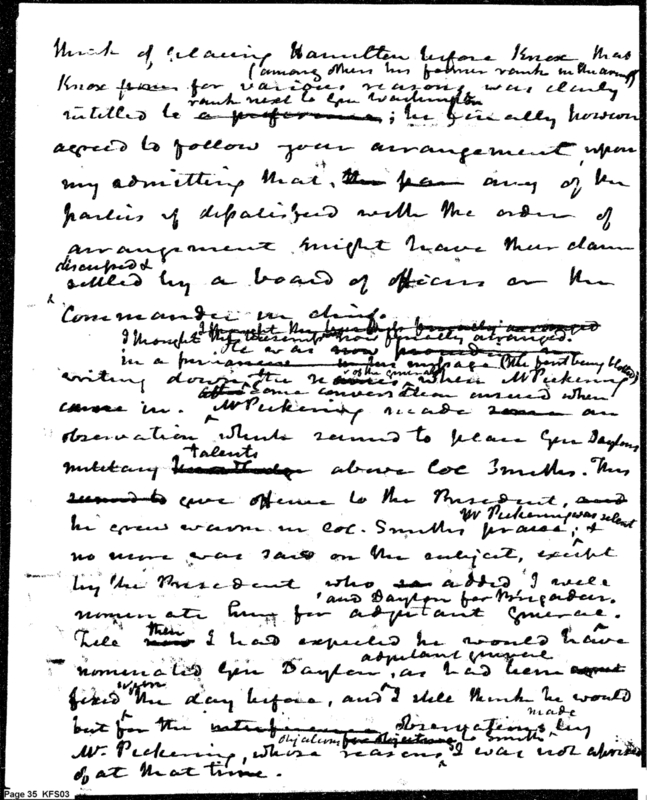 think of placing Hamilton before Knox, that
(among others his former rank in the army)
Knox for various reasons, was clearly
rank next to Gen Washington
intitled to a preference; he finally however
agreed to follow your arrangement, upon
my admitting that, the par any of the
parties if dissatisfied with the order of
arrangement might have their claim
discussed &
settled by a board of officers or the
Commander in chief.
I thought the now finally arranged.
He was now
in a message (the first being blotted)
of the generals
writing down the names when Mr Pickering
some conversation ensued when
came in. Mr Pickering made some an
observation which seemed to place Gen Daytons
talents
military knowledge above Col Smiths. This
seemed to give offence to the President, and
Mr Pickering was silent
he grew warm in Col. Smiths praise; &
no more was said on the subject, except
by the President who added I will
and Dayton for Brigadier.
nominate him for adjutant general.
then
Till now I had expected he would have
adjutant general
nominated Gen Dayton, as had been
upon
fixed the day before, and I still think he would
made
but for the observations by
objections to Smith
Mr. Pickering, whose reasons I was not apprised
of at that time.
Page 35 KFS03